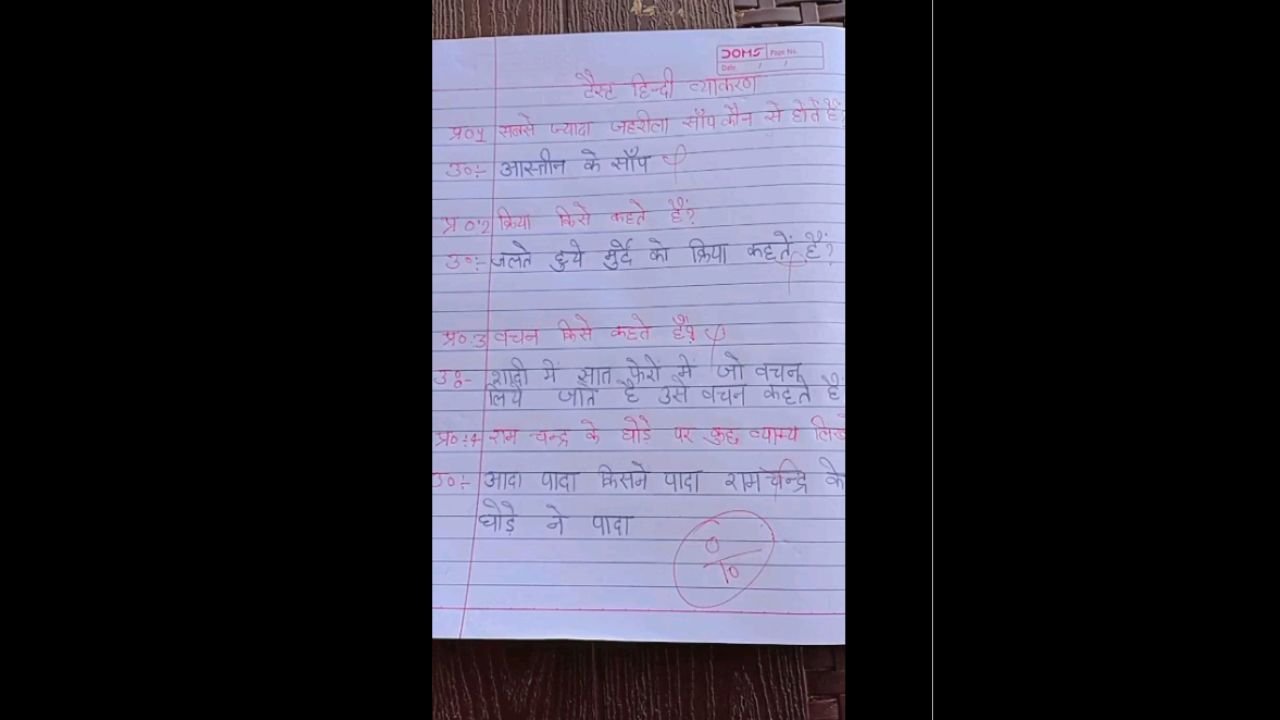 DOMS Page No.
Date / /
टेस्ट हिन्दी व्याकरण
प्र०1 सबसे ज्यादा जहरीला साँप कौन से होते हैं?
उ०:- आस्तीन के साँप
प्र०:2 क्रिया किसे कहते हैं?
उ०:- जलते हुये मुर्दे को क्रिया कहतें हैं?
प्र०:3 वचन किसे कहते हैं?
उ०:- शादी में सात फेरों में जो वचन
लिये जाते है उसे वचन कहते हैं
प्र०:4 राम चन्द्र के घोड़े पर कुछ व्याग्य लिखो
उ०:- आदा पादा किसने पादा रामचन्द्रि के
घोड़े ने पादा
0
10